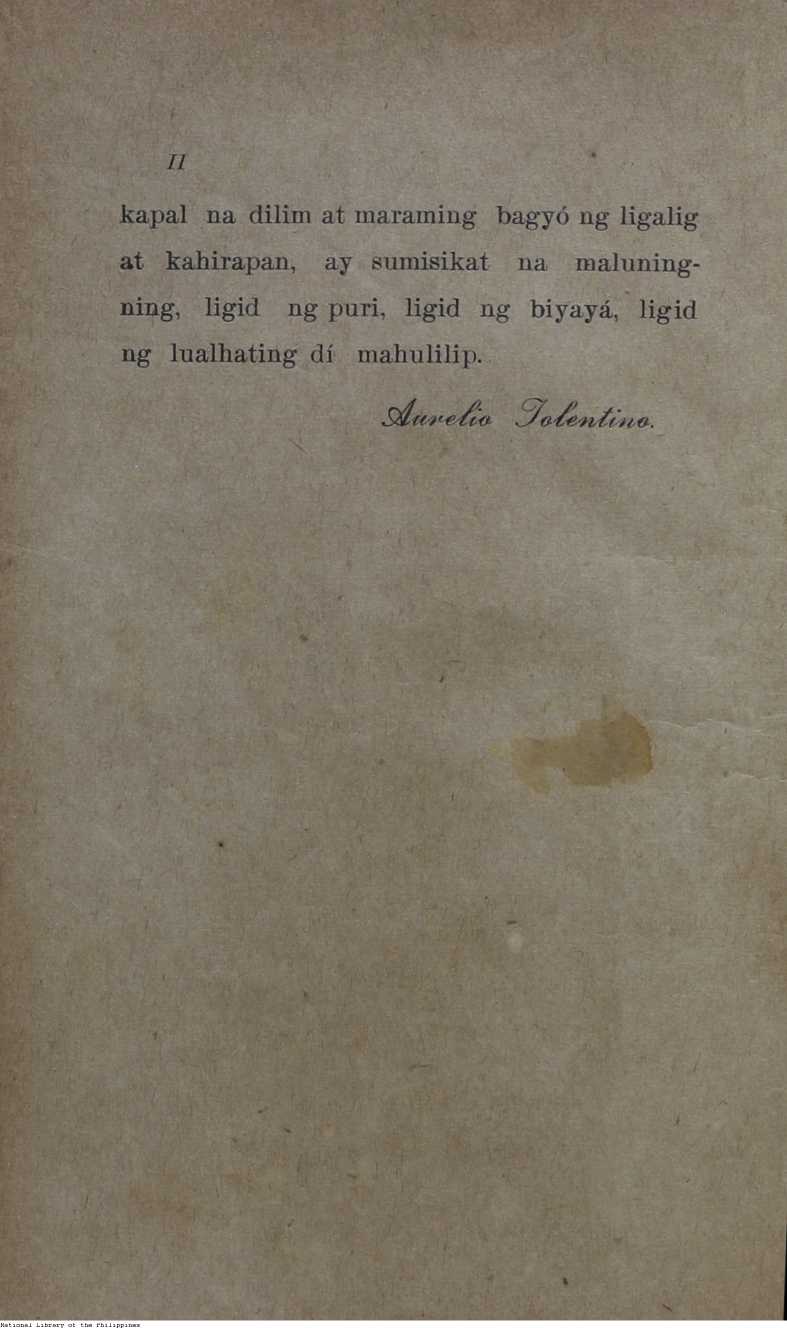 II
kapal na dilim at maraming bagyó ng ligalig
at kahirapan, ay sumisikat na maluning-
ning, ligid ng puri, ligid ng biyayá, ligid
ng lualhating dí mahulilip.
Aurelio Tolentino.
National Library of the Philippines